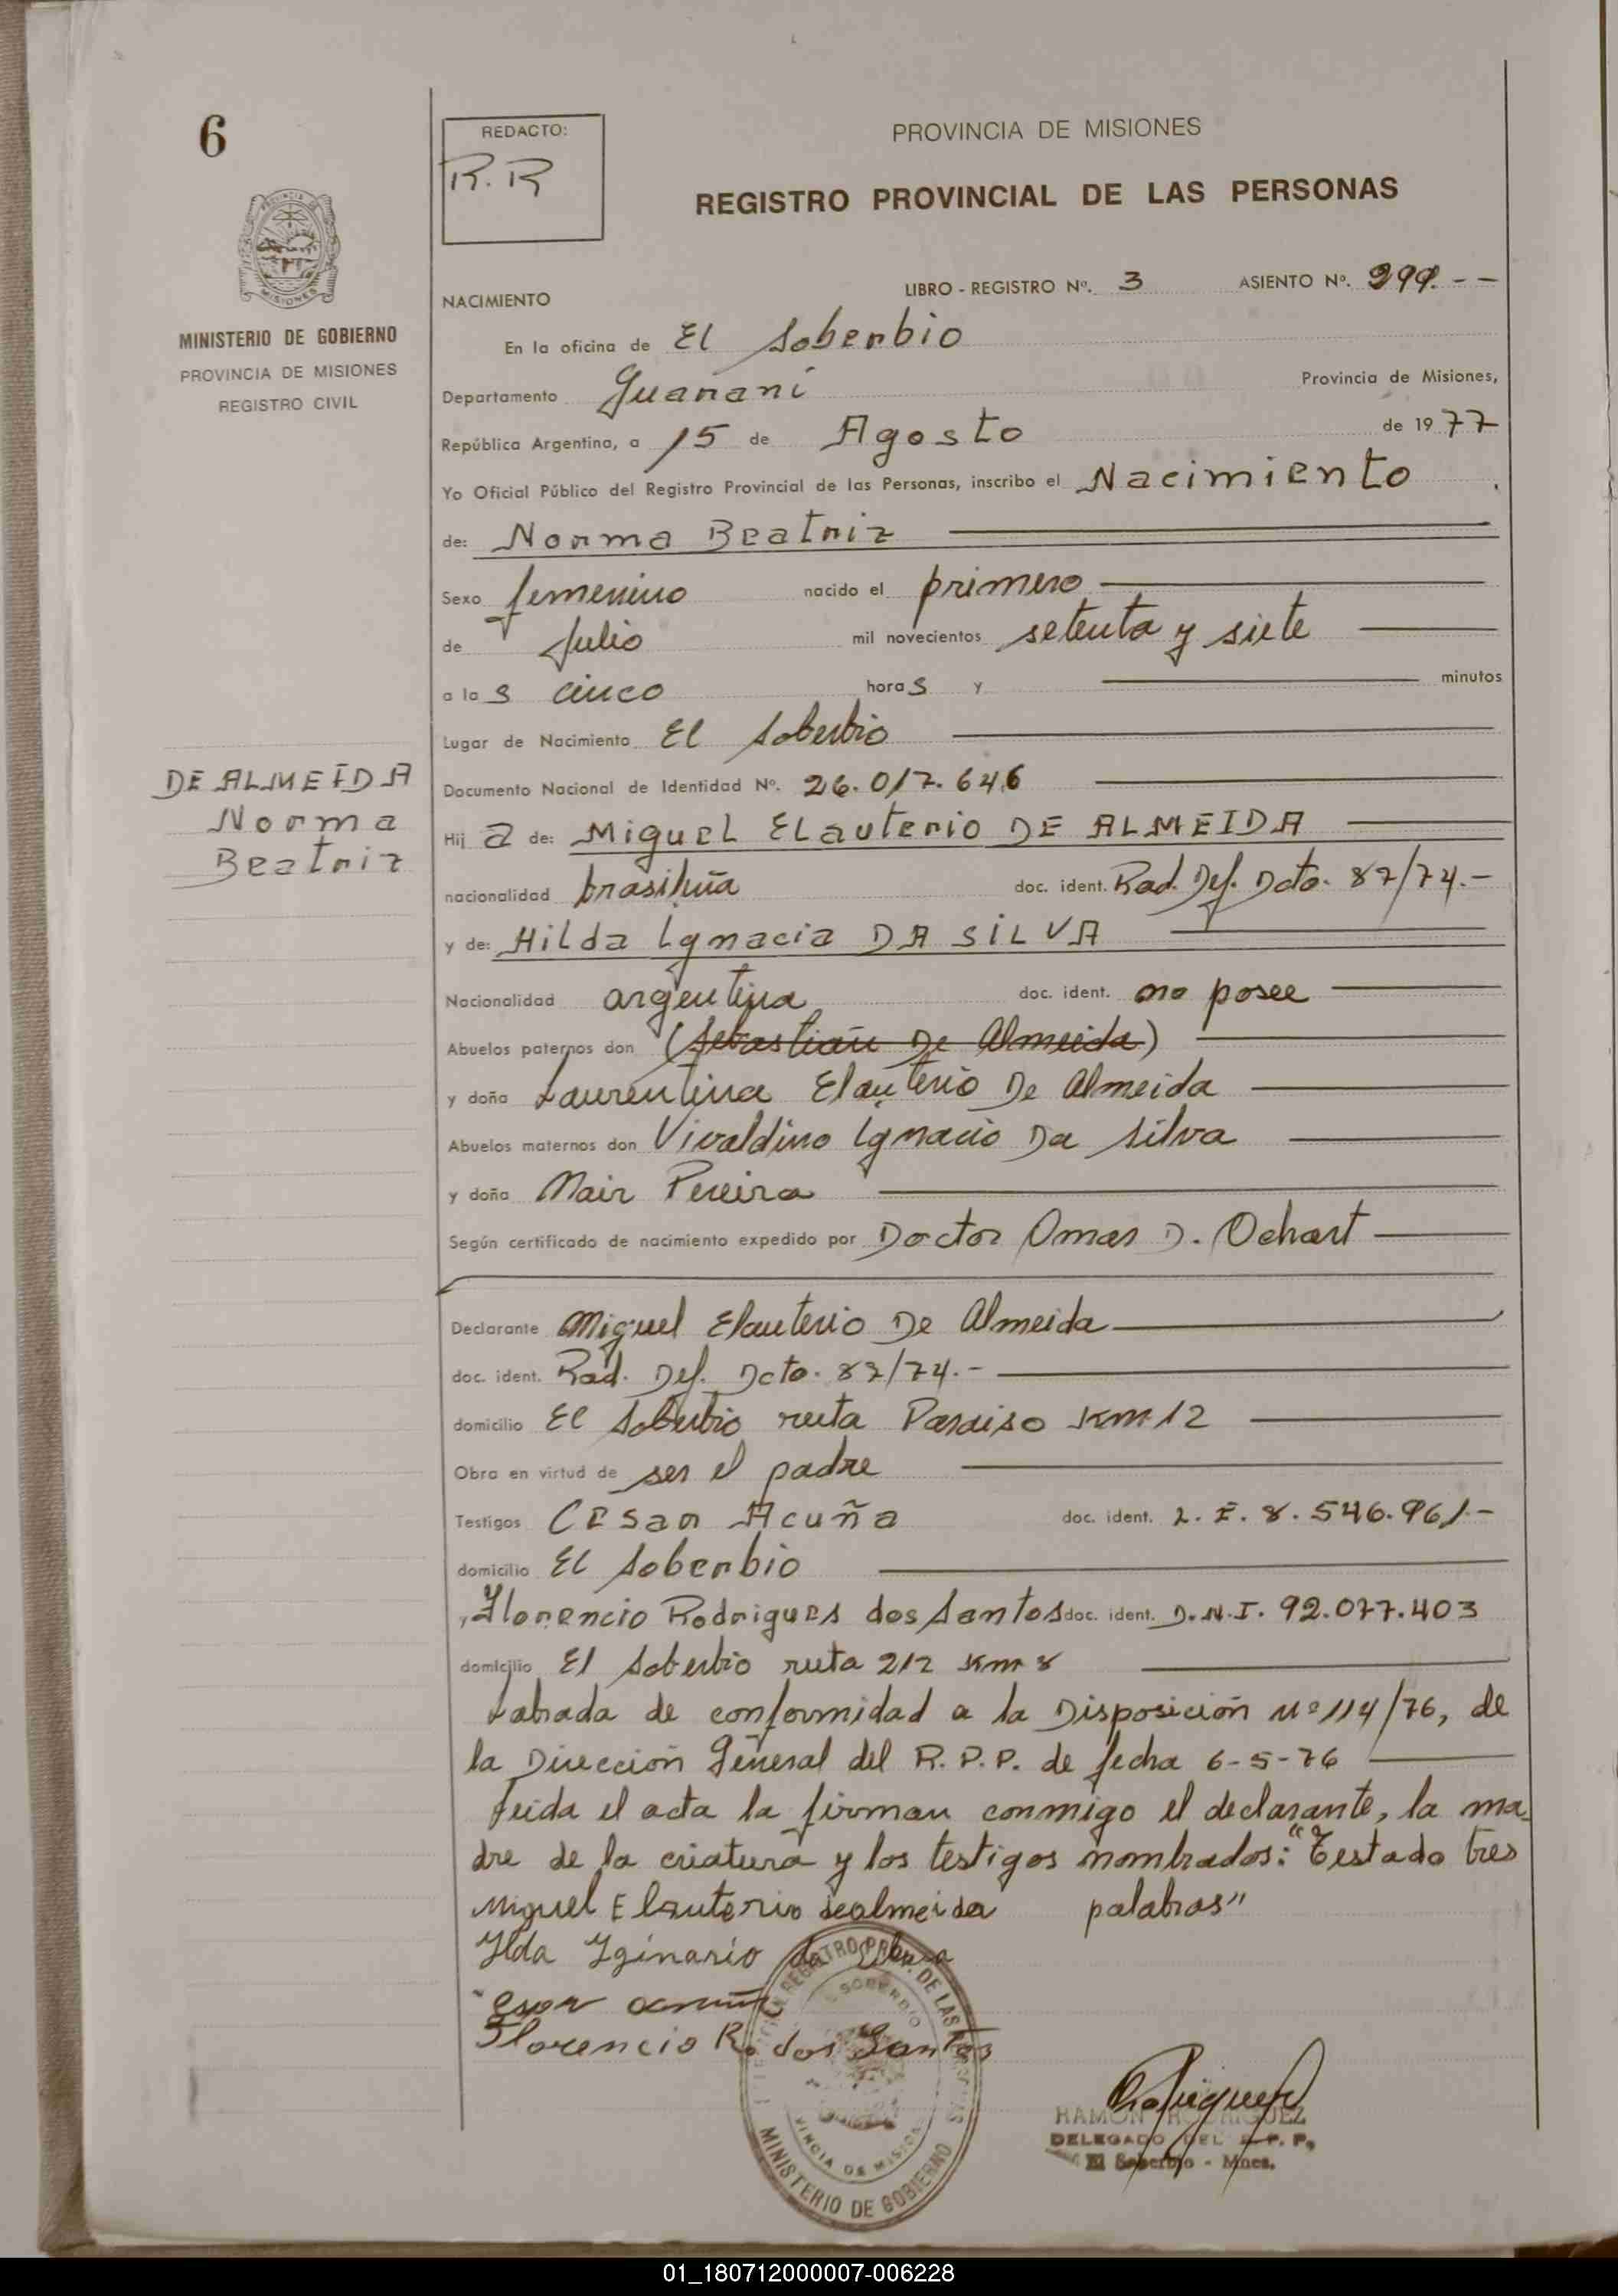 6
REDACTO:
R. R
PROVINCIA DE MISIONES
REGISTRO PROVINCIAL DE LAS PERSONAS
MINISTERIO DE GOBIERNO
PROVINCIA DE MISIONES
REGISTRO CIVIL
NACIMIENTO
LIBRO - REGISTRO Nº. 3 ASIENTO Nº. 299.--
En la oficina de El Soberbio
Departamento Guaraní Provincia de Misiones,
República Argentina, a 15 de Agosto de 1977
Yo Oficial Público del Registro Provincial de las Personas, inscribo el Nacimiento
de: Norma Beatriz
Sexo femenino nacido el primero
de Julio mil novecientos setenta y siete
a las cinco horas y minutos
Lugar de Nacimiento El Soberbio
DE ALMEIDA
Norma
Beatriz
Documento Nacional de Identidad Nº. 26.017.646
Hija de: Miguel Elauterio DE ALMEIDA
nacionalidad brasileña doc. ident. Rad. Def. Dcto. 87/74.-
y de: Hilda Ignacia DA SILVA
Nacionalidad argentina doc. ident. no posee
Abuelos paternos don (Sebastián De Almeida)
y doña Laurentina Elauterio De Almeida
Abuelos maternos don Vivaldino Ignacio Da Silva
y doña Nair Pereira
Según certificado de nacimiento expedido por Doctor Omar D. Ochart
Declarante Miguel Elauterio De Almeida
doc. ident. Rad. Def. Dcto. 87/74.-
domicilio El Soberbio ruta Paraiso Km 12
Obra en virtud de ser el padre
Testigos Cesar Acuña doc. ident. L. E. 8.546.961.-
domicilio El Soberbio
Florencio Rodrigues dos Santos doc. ident. D.N.I. 92.077.403
domicilio El Soberbio ruta 212 Km 8
Labrada de conformidad a la Disposición Nº 114/76, de
la Dirección General del R.P.P. de fecha 6-5-76
Leida el acta la firman conmigo el declarante, la ma-
dre de la criatura y los testigos nombrados: "Testado tres
palabras"
Miguel Elauterio dealmeida
Ilda Iginario da Silva
Cesar acuña
Florencio R. dos Santos
MINISTERIO DE GOBIERNO
RAMON RODRIGUEZ
DELEGADO DEL R. P. P.
El Soberbio - Mnes.
01_180712000007-006228